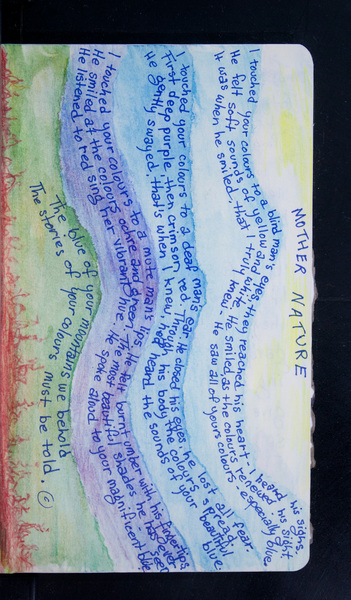 MOTHER NATURE
I touched your colours to a blind man's eyes; they reached his heart - I heard his sighs.
He felt soft sounds of yellow and white. He smiled as the colours renewed his sight.
It was when he smiled, that I truly knew - He saw all of yours colours especially blue.
I touched your colours to a deaf man's ear. He closed his eyes he lost all fear.
First deep purple, then crimson, red, Through his body the colours already
He gently swayed, that's when I knew, he heard the sounds of your beautiful blue.
I touched your colours to a mute man's lips. He felt burnt umber with his fingertips
He smiled at the colours ochre and green, The most beautiful shades he has ever seen
He listened to red sing her vibrant hue He spoke aloud to your magnificent blue.
The blue of your mountains we behold
The stories of your colours must be told. ©